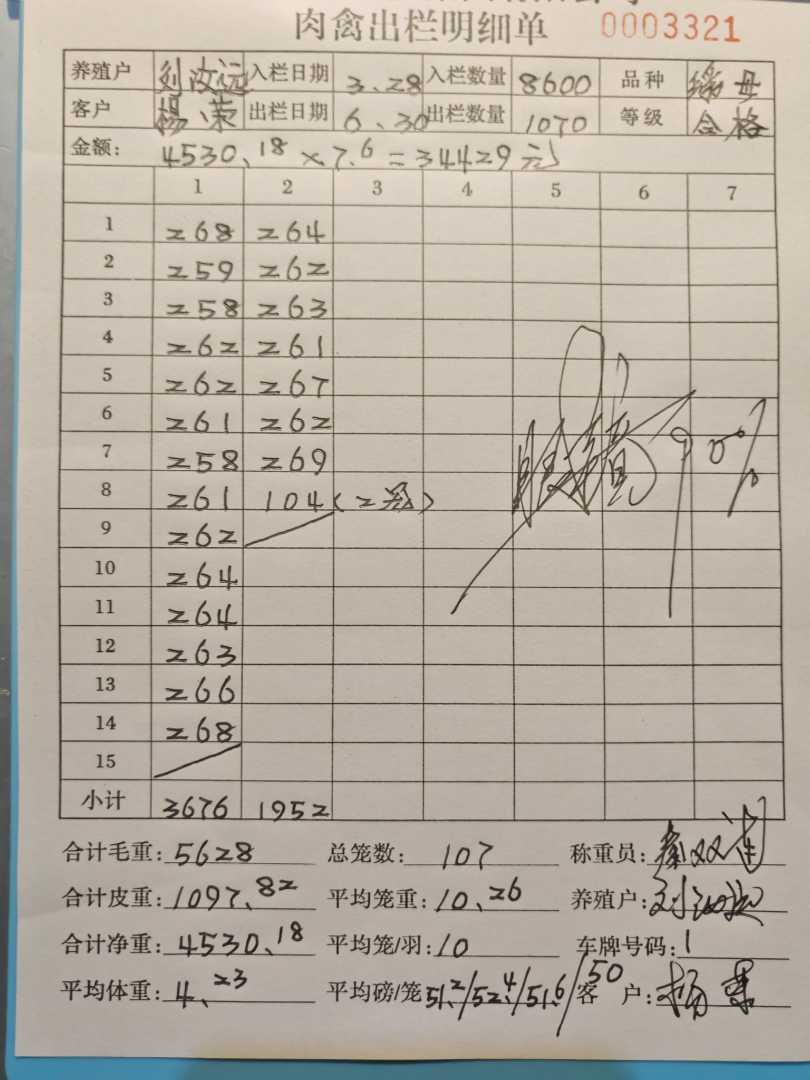 肉禽出栏明细单 0003321
养殖户 刘汝远 入栏日期 3.28 入栏数量 8600 品种
客户 杨荣 出栏日期 6.30 出栏数量 1070 等级 合格
金额: 4530.18×7.6=34429元
1 2 3 4 5 6 7
1 268 264
2 259 262
3 258 263
4 262 261
5 262 267
6 261 262
7 258 269
8 261 104(2笼)
9 262
10 264
11 264
12 263
13 266
14 268
15
小计 3676 1952
90%
合计毛重: 5628 总笼数: 107 称重员:
合计皮重: 1097.82 平均笼重: 10.26 养殖户:
合计净重: 4530.18 平均笼/羽: 10 车牌号码: 1
平均体重: 4.23 平均磅/笼 51.2/52.4/51.6/50 客 户: 杨荣